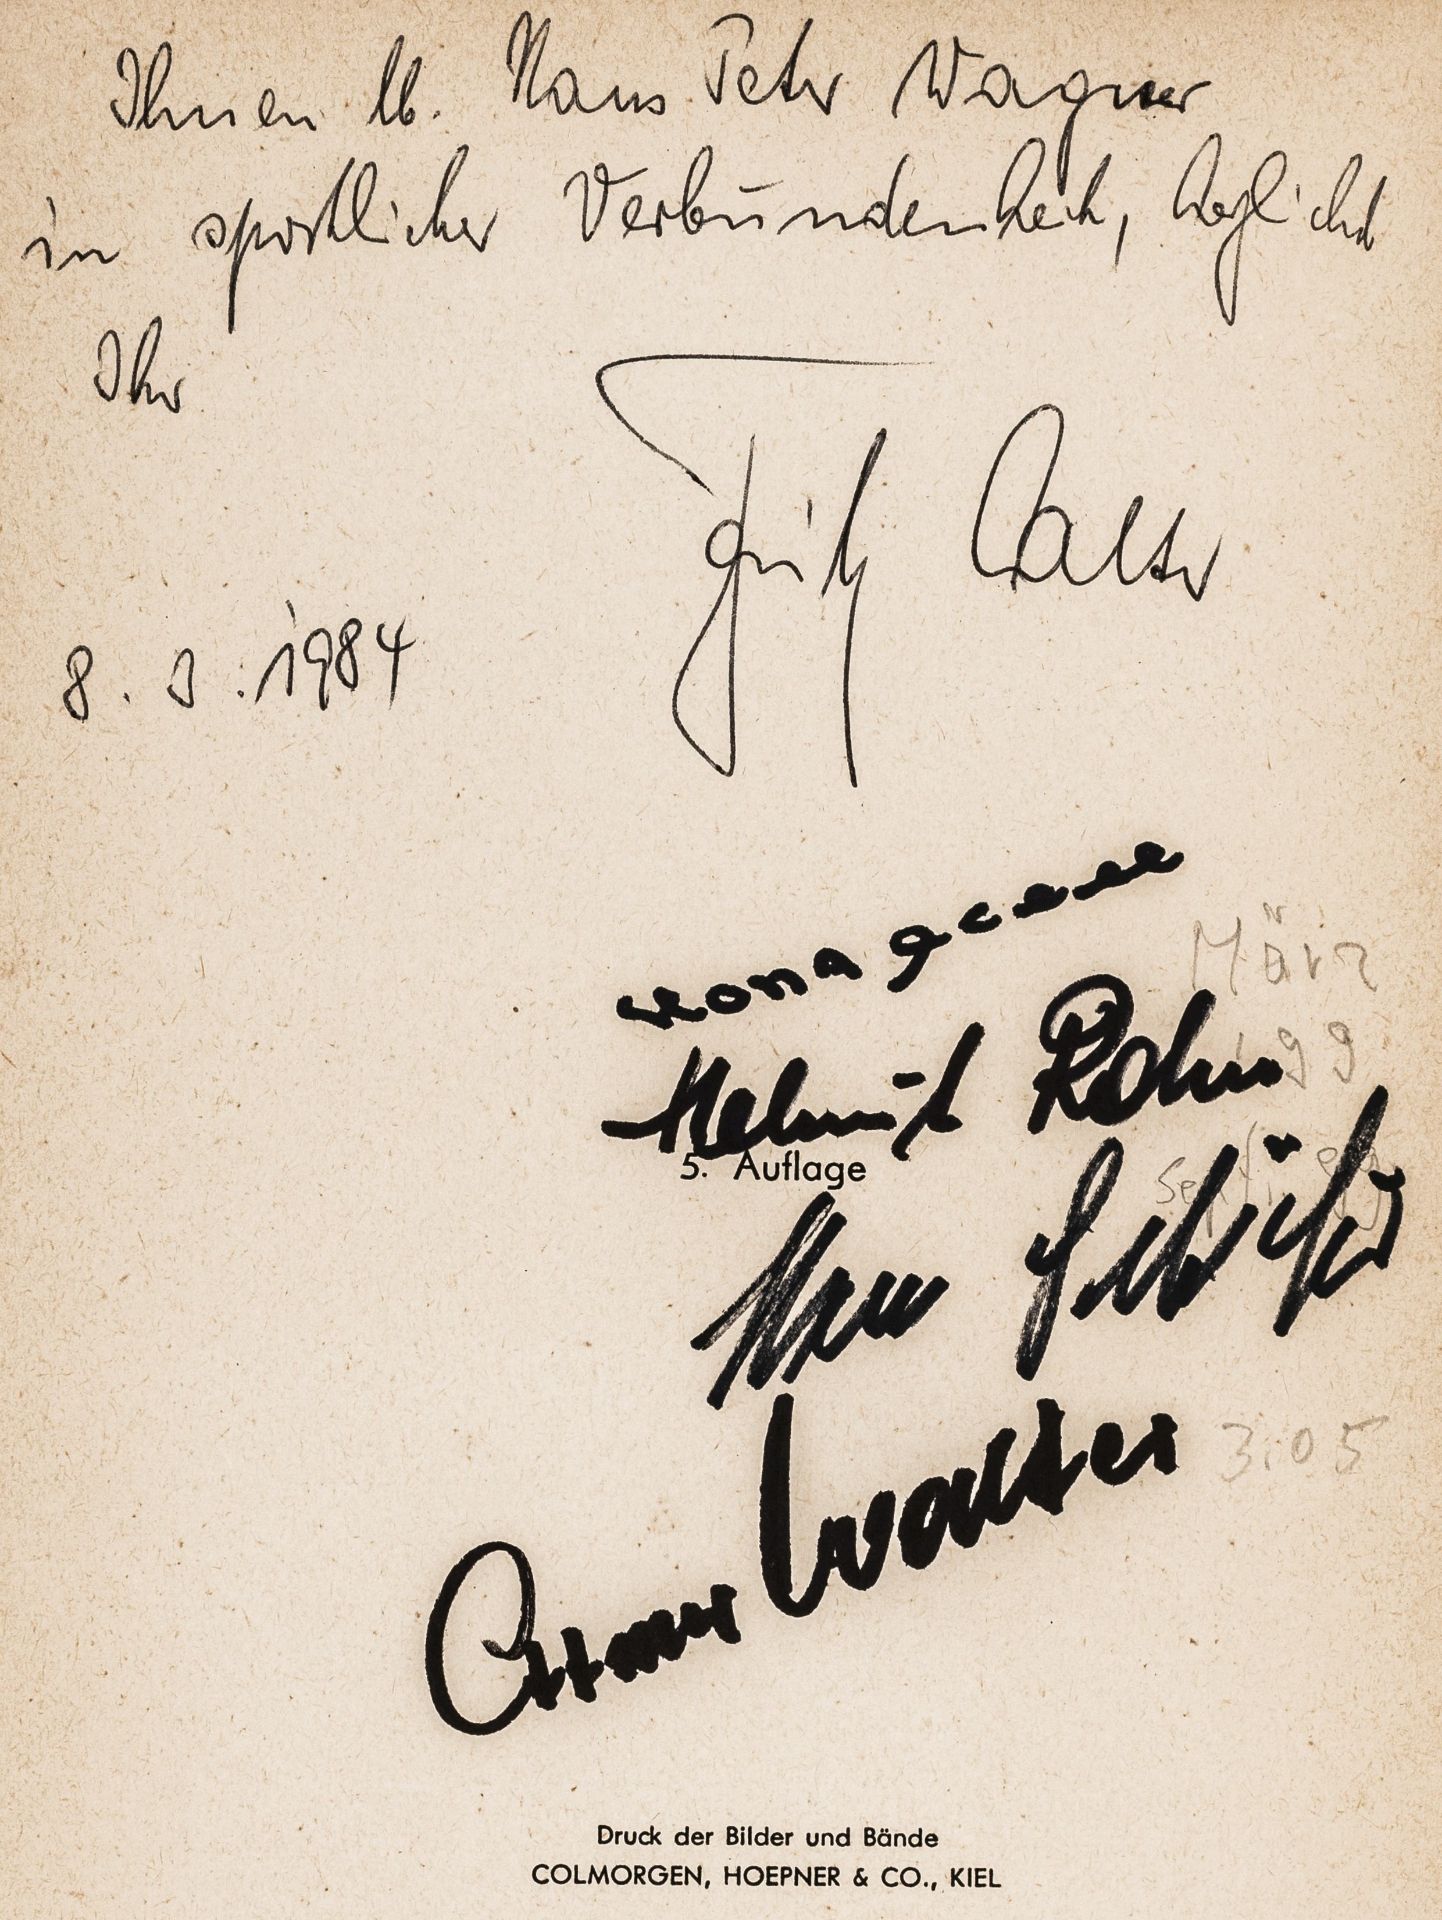 Ihnen lb. Hans Peter Wagner
in sportlicher Verbundenheit, herzlichst
Ihr
Fritz Walter
8. 3. 1984
Horst Eckel
März
99
Helmut Rahn
5. Auflage
Hans Schäfer
3.05
Ottmar Walter
Druck der Bilder und Bände
COLMORGEN, HOEPNER & CO., KIEL